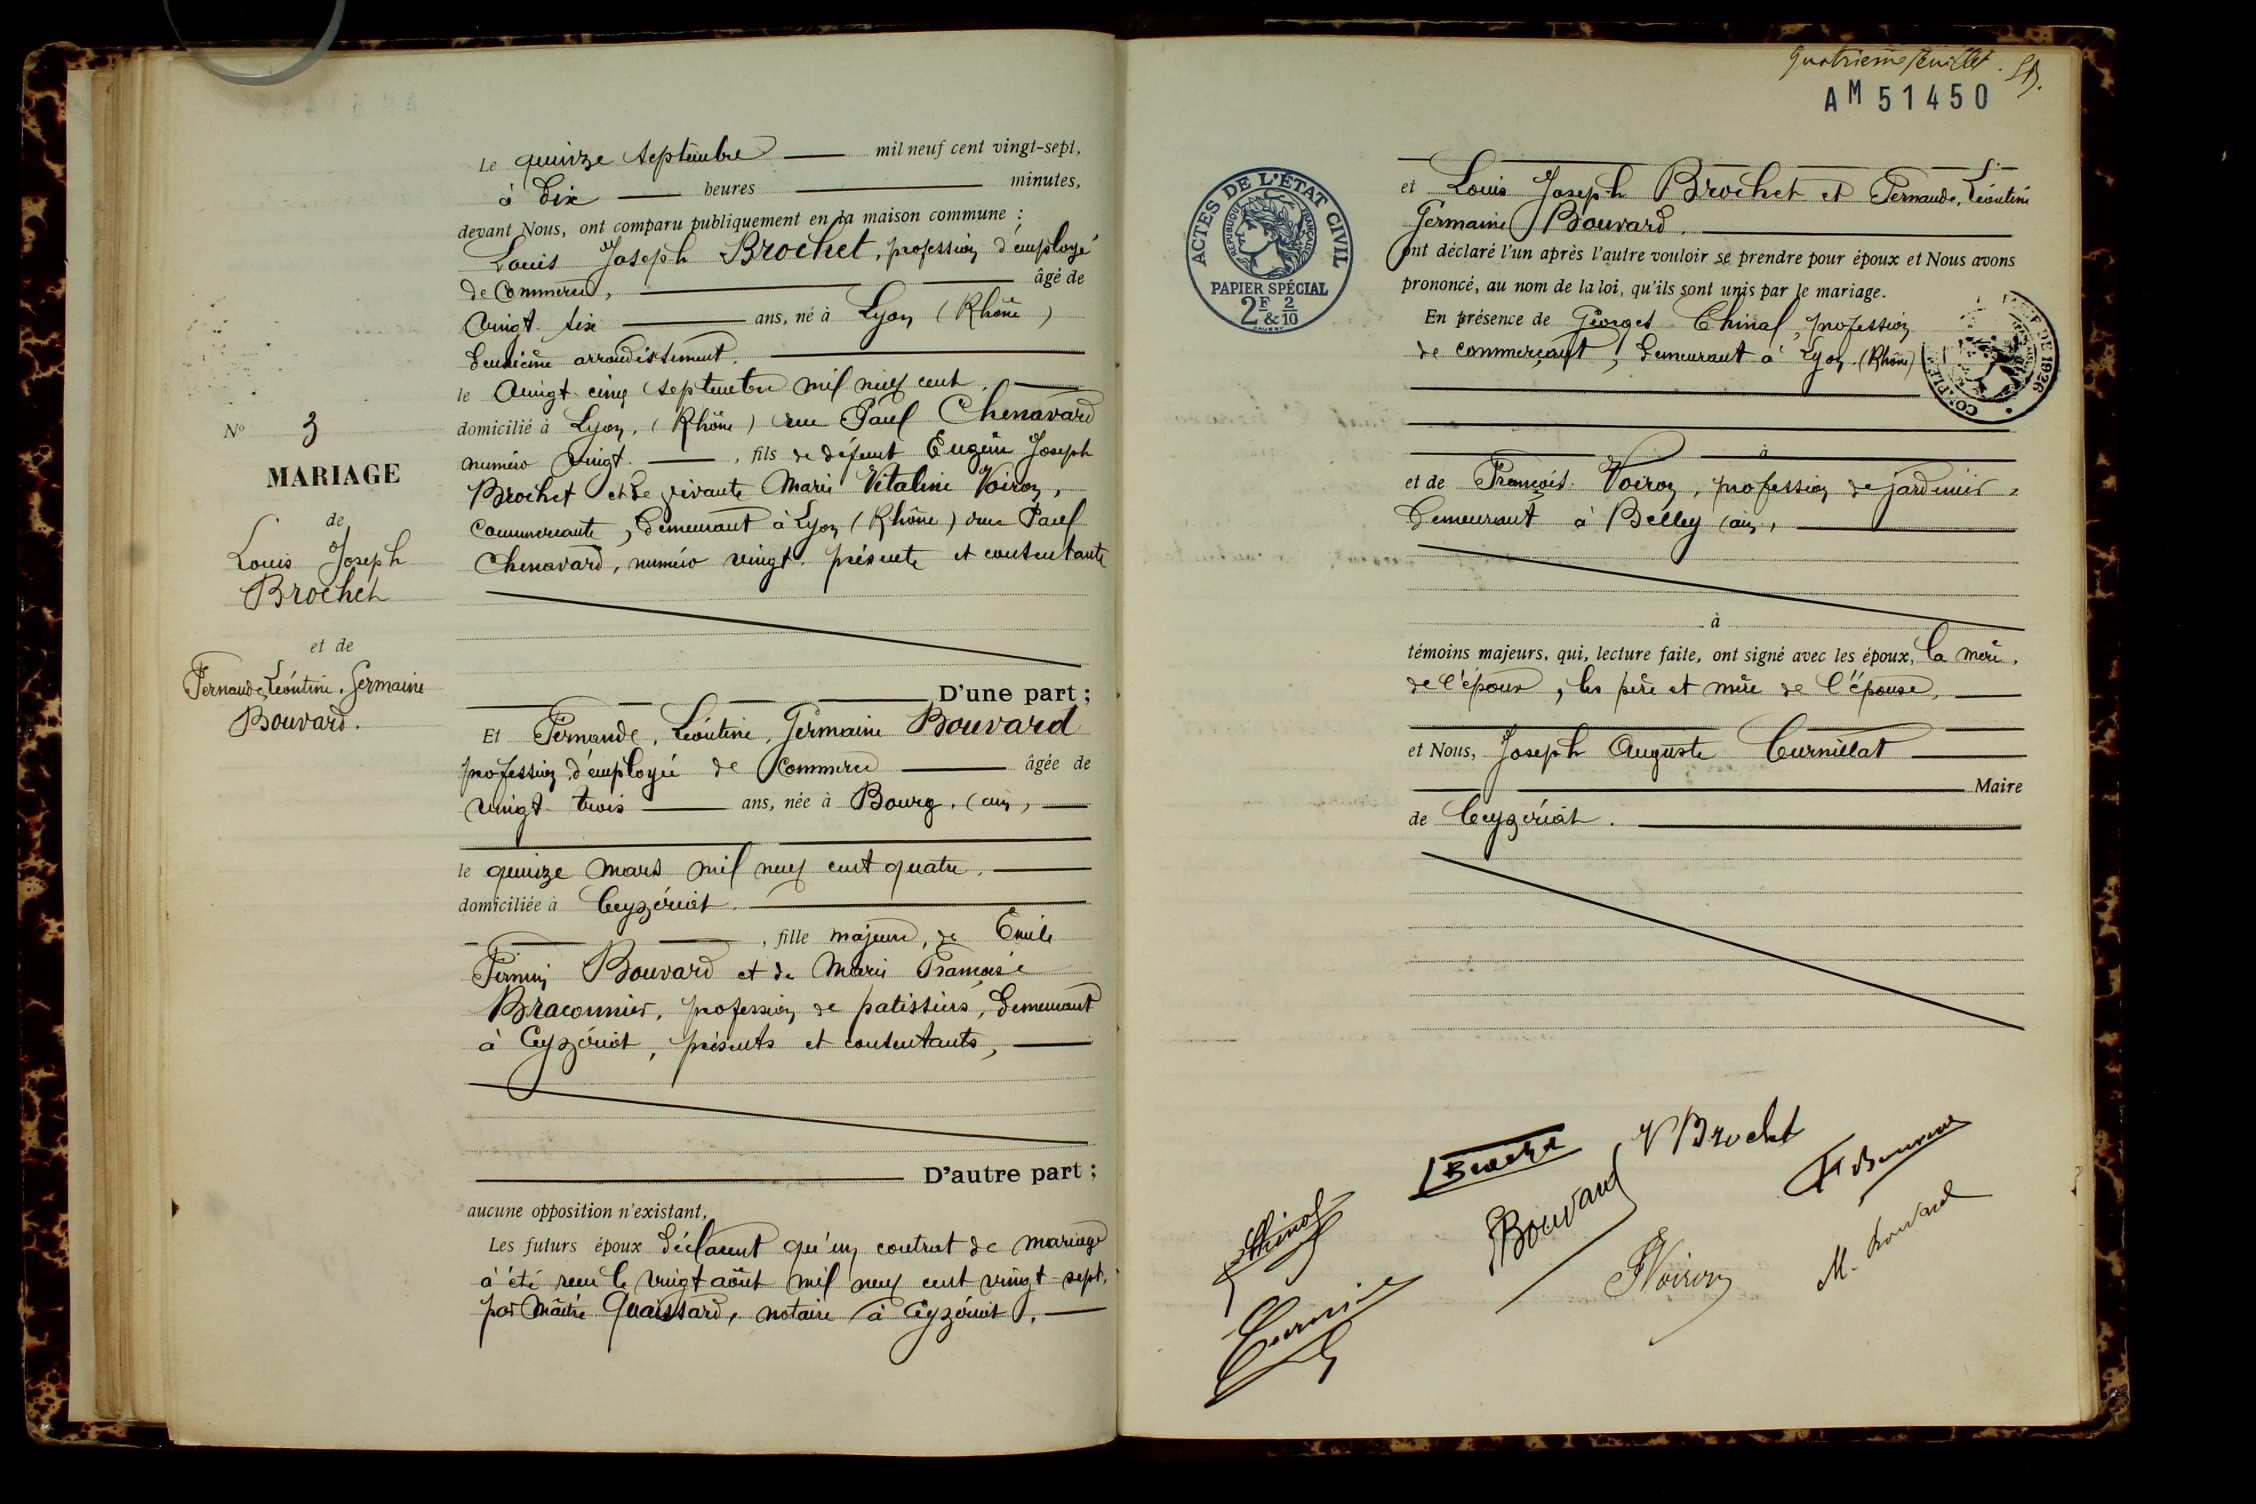 Le quinze septembre mil neuf cent vingt-sept,
à dix heures minutes,
devant Nous, ont comparu publiquement en la maison commune :
Louis Joseph Brochet, profession d'employé
de commerce, âgé de
vingt six ans, né à Lyon (Rhône)
deuxième arrondissement.
le vingt cinq septembre mil neuf cent.
domicilié à Lyon, (Rhône) rue Paul Chenavard
numéro vingt. , fils de défunt Eugène Joseph
Brochet et de vivante Marie Vitaline Voiron,
commercante, demeurant à Lyon (Rhône) rue Paul
Chenavard, numéro vingt. présente et consentante
D'une part ;
Et Fernande, Léontine, Germaine Bouvard
profession d'employée de commerce âgée de
vingt trois ans, née à Bourg, (ain,
le quinze mars mil neuf cent quatre.
domiciliée à Ceyzériat.
, fille majeure, de Emile
Firmin Bouvard et de Marie Françoise
Braconnier, profession de patissiers, demeurant
à Ceyzériat, présents et consentants,
D'autre part ;
aucune opposition n'existant,
Les futurs époux déclarent qu'un contrat de mariage
à été recu le vingt août mil neuf cent vingt-sept,
par Maître Quaissard, notaire à Ceyzériat.
N° 3
MARIAGE
de
Louis Joseph
Brochet
et de
Fernande, Léontine, Germaine
Bouvard.
Quatrième feuillet.
AM 51450
ACTES DE L'ÉTAT CIVIL
RÉPUBLIQUE FRANÇAISE
PAPIER SPÉCIAL
2F & 2/10
et Louis Joseph Brochet et Fernande, Léontine
Germaine Bouvard.
ont déclaré l'un après l'autre vouloir se prendre pour époux et Nous avons
prononcé, au nom de la loi, qu'ils sont unis par le mariage.
En présence de Georges Chinal, profession
de commerçant, demeurant à Lyon (Rhône)
DE 1926
à
et de François Voiron, profession de jardinier,
demeurant à Belley (ain,
à
témoins majeurs, qui, lecture faite, ont signé avec les époux, la mère,
de l'époux, les père et mère de l'épouse,
et Nous, Joseph Auguste Curnillat
Maire
de Ceyzériat.
V Brochet
Bouvard
F Voiron
M. Bouvard
Chinal